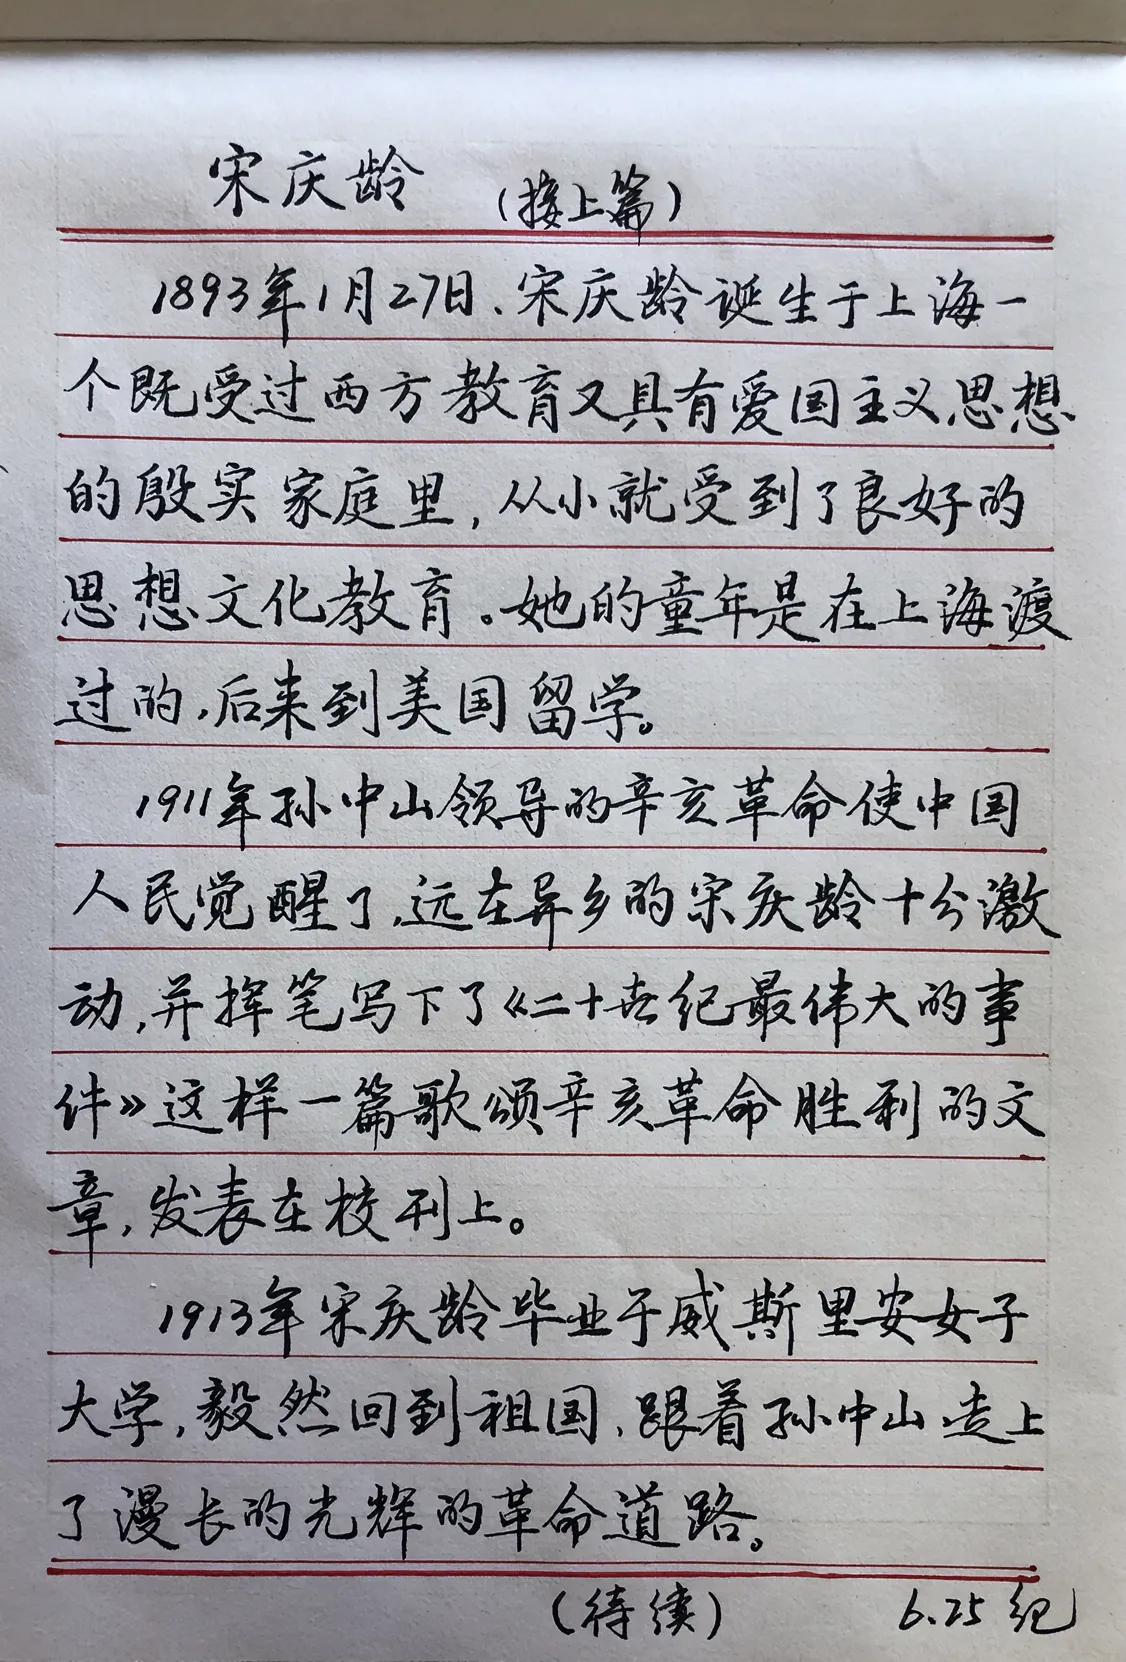 宋庆龄 (接上篇)
1893年1月27日、宋庆龄诞生于上海一
个既受过西方教育又具有爱国主义思想
的殷实家庭里,从小就受到了良好的
思想文化教育。她的童年是在上海渡
过的,后来到美国留学。
1911年孙中山领导的辛亥革命使中国
人民觉醒了,远在异乡的宋庆龄十分激
动,并挥笔写下了《二十世纪最伟大的事
件》这样一篇歌颂辛亥革命胜利的文
章,发表在校刊上。
1913年宋庆龄毕业于威斯里安女子
大学,毅然回到祖国,跟着孙中山走上
了漫长的光辉的革命道路。
(待续) 6.25纪